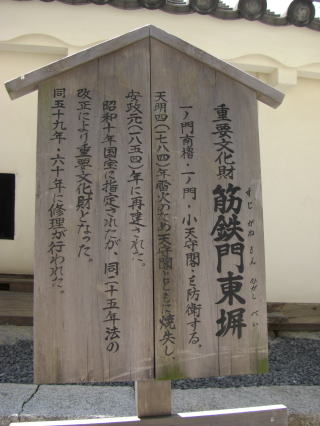 重要文化財
筋鉄門東塀
すじがねもんひがしべい
一ノ門南櫓・一ノ門・小天守閣・を防衛する。
天明四(一七八四)年雷火のため天守閣とともに焼失し、
安政元(一八五四)年に再建された。
昭和十年国宝に指定されたが、同二十五年法の
改正により重要文化財となった。
同五十九年・六十年に修理が行われた。